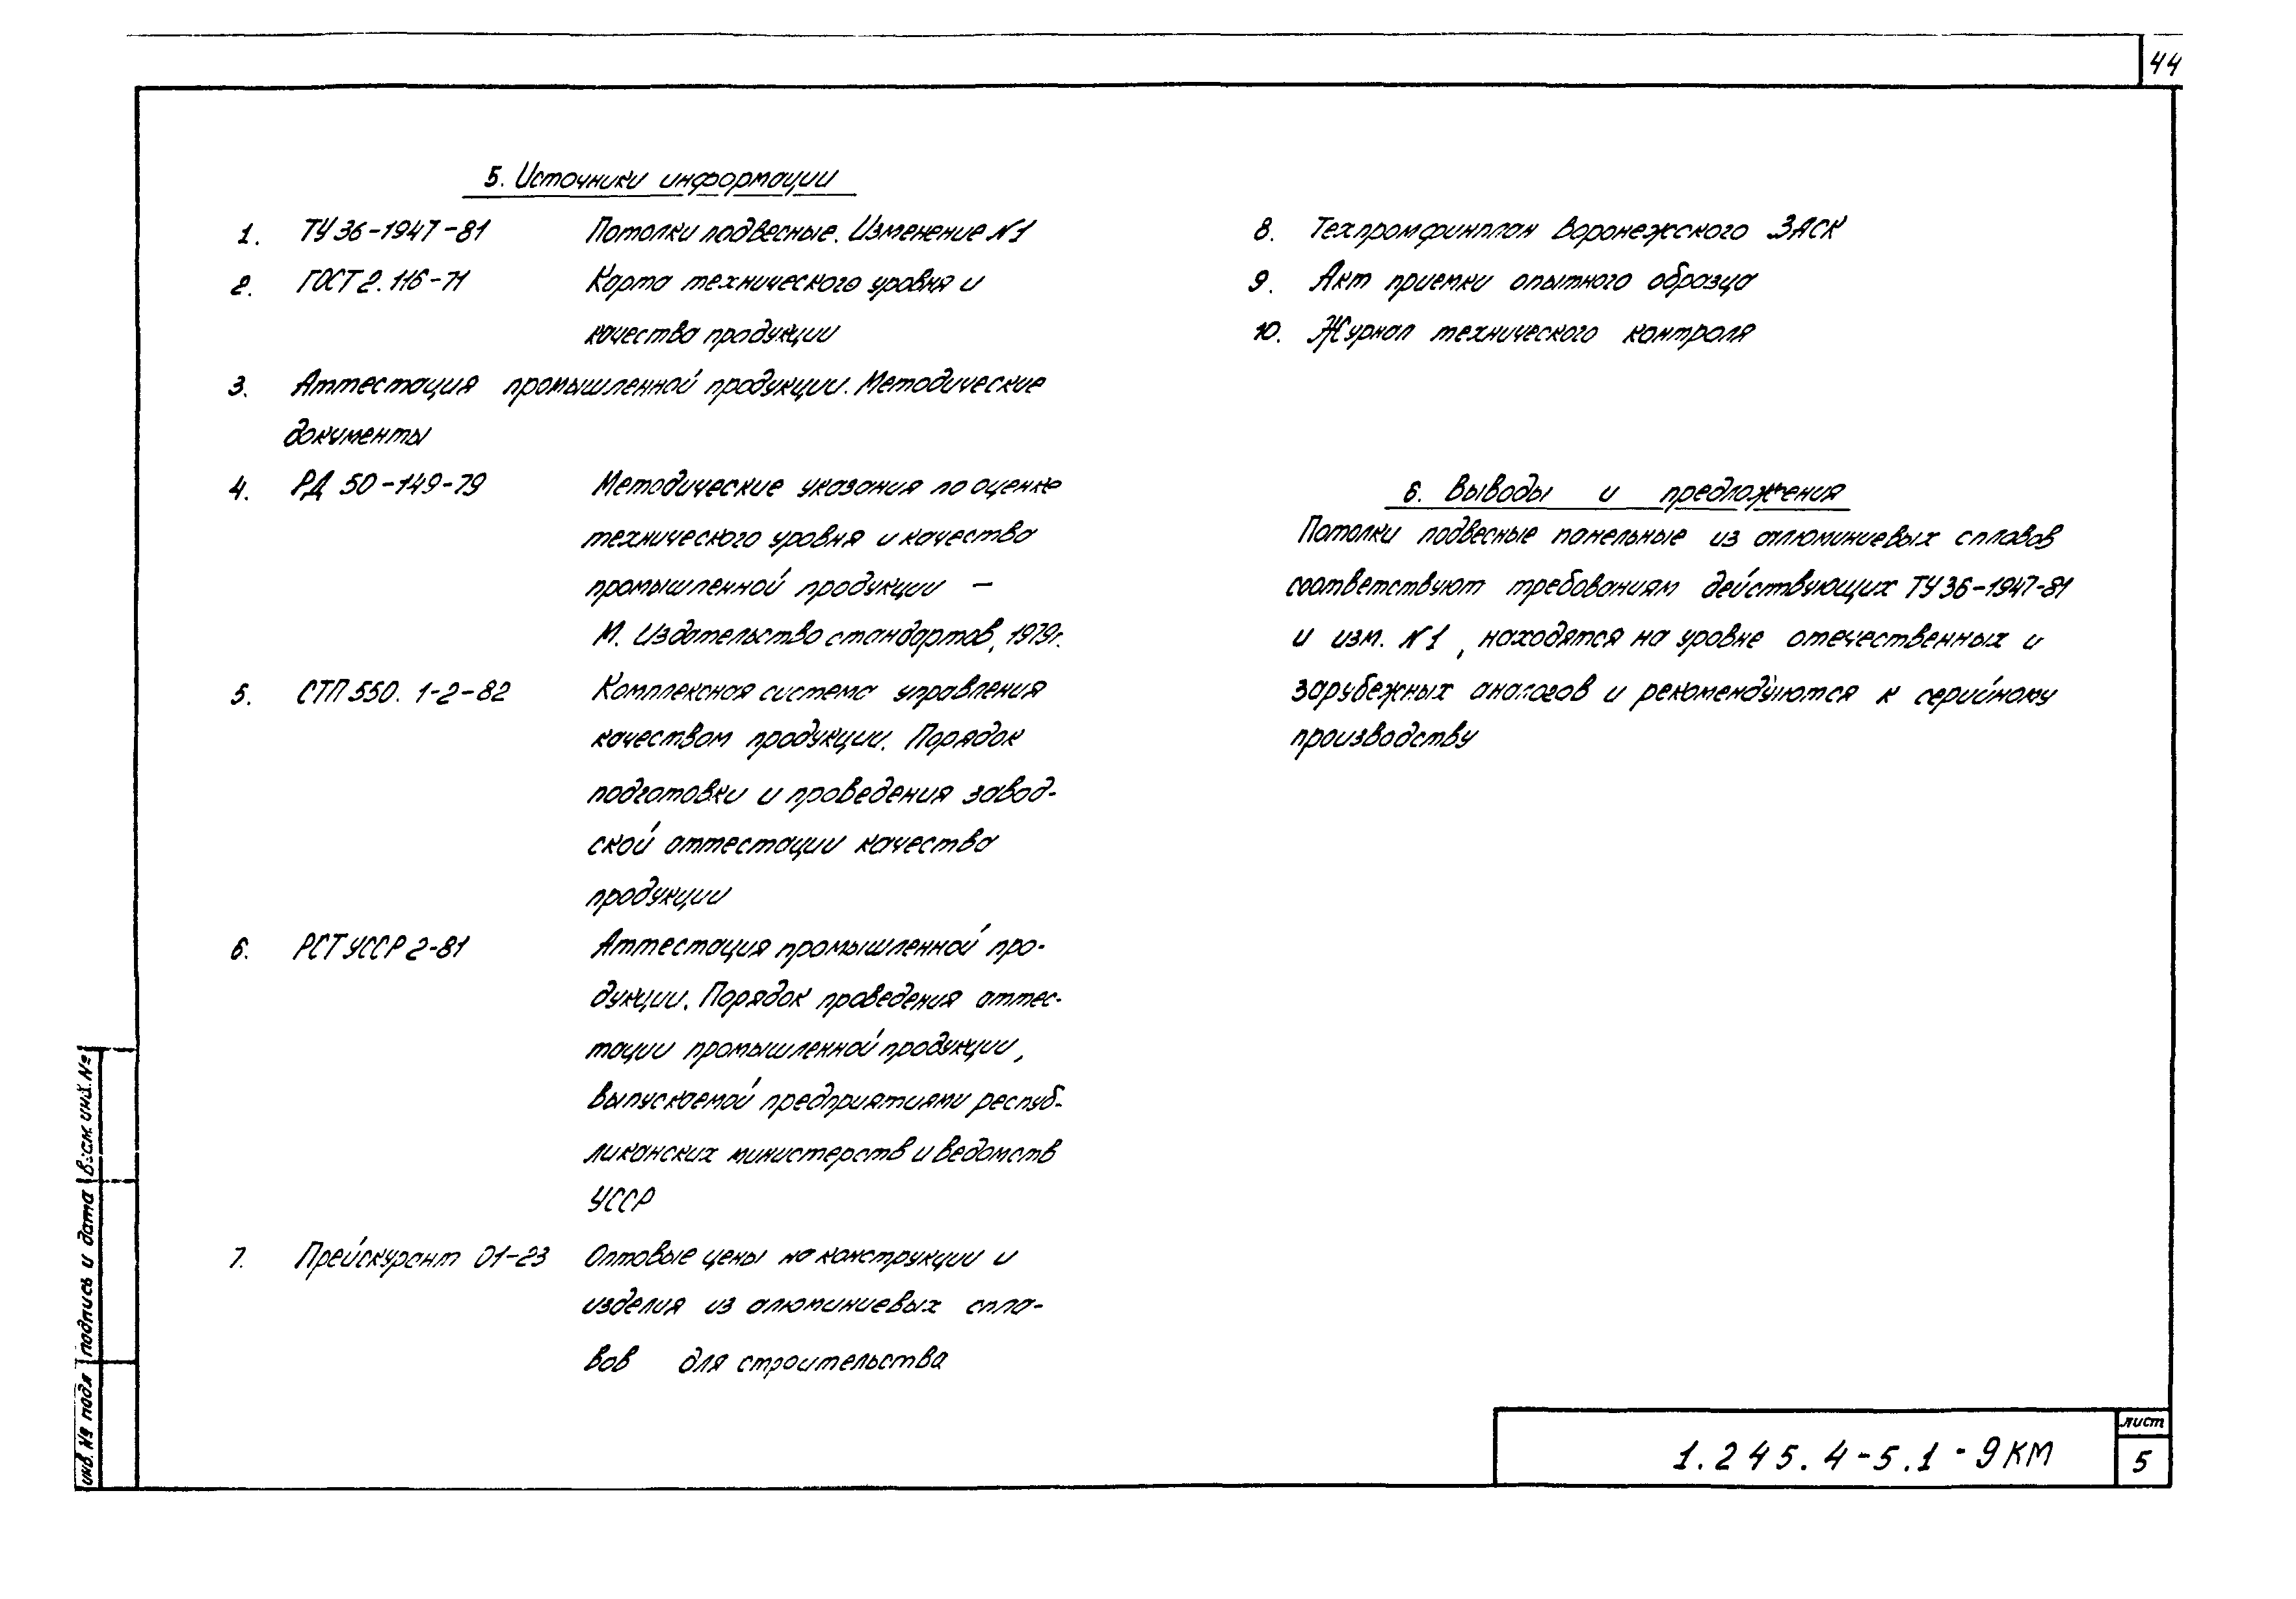 44
5. Источники информации
1. ТУ 36-1947-81 Потолки подвесные. Изменение №1
2. ГОСТ 2.116-71 Карта технического уровня и
качества продукции
3. Аттестация промышленной продукции. Методические
документы
4. РД 50-149-79 Методические указания по оценке
технического уровня и качества
промышленной продукции —
М. Издательство стандартов, 1979г.
5. СТП 550. 1-2-82 Комплексная система управления
качеством продукции. Порядок
подготовки и проведения завод-
ской аттестации качества
продукции
6. РСТ УССР 2-81 Аттестация промышленной про-
дукции. Порядок проведения аттес-
тации промышленной продукции,
выпускаемой предприятиями респуб-
ликанских министерств и ведомств
УССР
7. Прейскурант 01-23 Оптовые цены на конструкции и
изделия из алюминиевых спла-
вов для строительства
8. Техпромфинплан Воронежского ЗАСК
9. Акт приемки опытного образца
10. Журнал технического контроля
6. Выводы и предложения
Потолки подвесные панельные из алюминиевых сплавов
соответствуют требованиям действующих ТУ 36-1947-81
и изм. №1, находятся на уровне отечественных и
зарубежных аналогов и рекомендуются к серийному
производству
инв. № подл подпись и дата Взам. инв. №
1.245.4-5.1-9КМ
лист
5